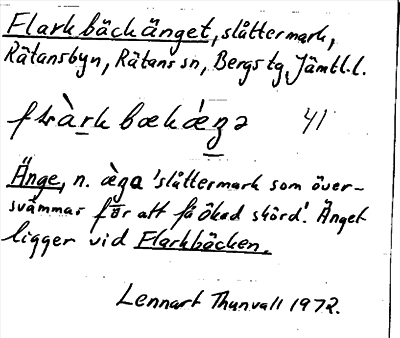 Flarkbäckänget, slåttermark,
Rätansbyn, Rätans sn, Bergs tg, Jämtl.l.
41
Änge, n. æga 'slåttermark som över-
svämmas för att få ökad skörd'. Änget
ligger vid Flarkbäcken.
Lennart Thunvall 1972.